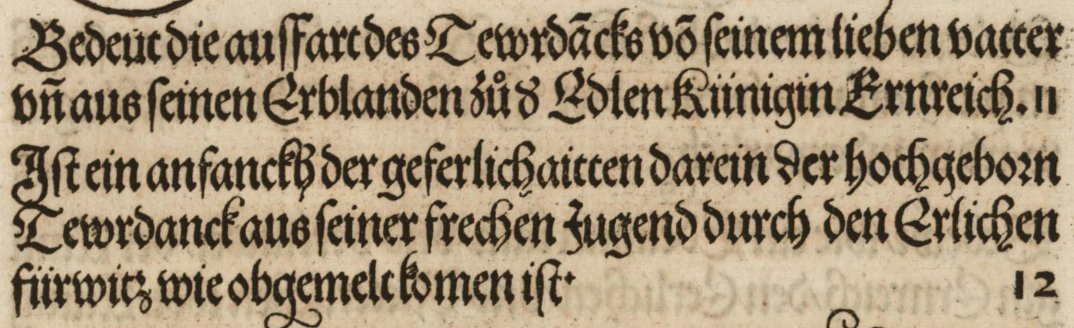 Bedeut die ausſfart des Tewrdãcks võ ſeinem lieben vatter
vñ aus ſeinen Erblanden zůð Edlen Künigin Ernreich. 11
Iſt ein anfanckh der geferlichaitten darein der hochgeborn
Tewrdanck aus ſeiner frechen Jugend durch den Erlichen
fürwitz wie obgemelt komen iſt· 12